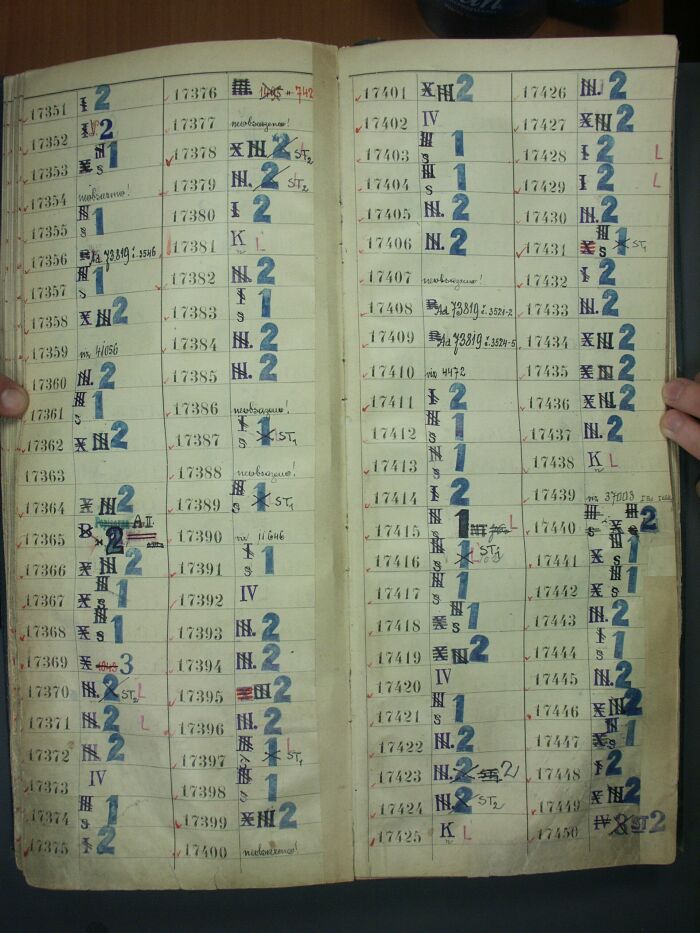 17351 I 2
17352 2
17353 X III 1 s
17354 neobsazeno!
17355 III 1 s
17356 Ad 73819 č. 3546
17357 III 1 s
17358 X III 2
17359 viz 41056
17360 III. 2
17361 III 1 s
17362 X III 2
17363
17364 X III 2
17365 B 2 A.II.
17366 X III 2
17367 X III 1 s
17368 X III 1 s
17369 X 3
17370 III. 2 ST2 L
17371 III. 2 L
17372 III. 2
17373 IV
17374 III 1 s
17375 I 2
17376 III. 1495 742
17377 neobsazeno!
17378 X III 2 ST2
17379 III. 2 ST2
17380 I 2
17381 K L
17382 III. 2
17383 I 1 s
17384 III. 2
17385 III. 2
17386 neobsazeno!
17387 I 1 s ST1
17388 neobsazeno!
17389 III 1 s ST1
17390 viz 11646
17391 I 1 s
17392 IV
17393 III. 2
17394 III. 2
17395 III 2
17396 III. 2
17397 III 1 L ST1
17398 III 1 s
17399 X III 2
17400 neobsazeno!
17401 X III 2
17402 IV
17403 III 1 s
17404 III 1 s
17405 III. 2
17406 III. 2
17407 neobsazeno!
17408 Ad 73819 č. 3521-2
17409 Ad 73819 č. 3524-5
17410 viz 4472
17411 I 2
17412 III 1 s
17413 III 1 s
17414 I 2
17415 III 1 s L
17416 I 1 s L ST1
17417 III 1 s
17418 X III 1 s
17419 X III 2
17420 IV
17421 III 1 s
17422 III. 2
17423 III. 2 ST2 2
17424 III. 2 ST2
17425 K L
17426 III. 2
17427 X III 2
17428 I 2 L
17429 I 2 L
17430 III. 2
17431 X III 1 s ST1
17432 I 2
17433 III. 2
17434 X III 2
17435 X III 2
17436 X III 2
17437 III. 2
17438 K L
17439 viz 37003
17440 III s X III s 2
17441 X III 1 s
17442 X III 1 s
17443 III. 2
17444 I 1 s
17445 III. 2
17446 X III 2
17447 X III 1 s
17448 I 2
17449 X III 2
17450 IV 8 ST 2